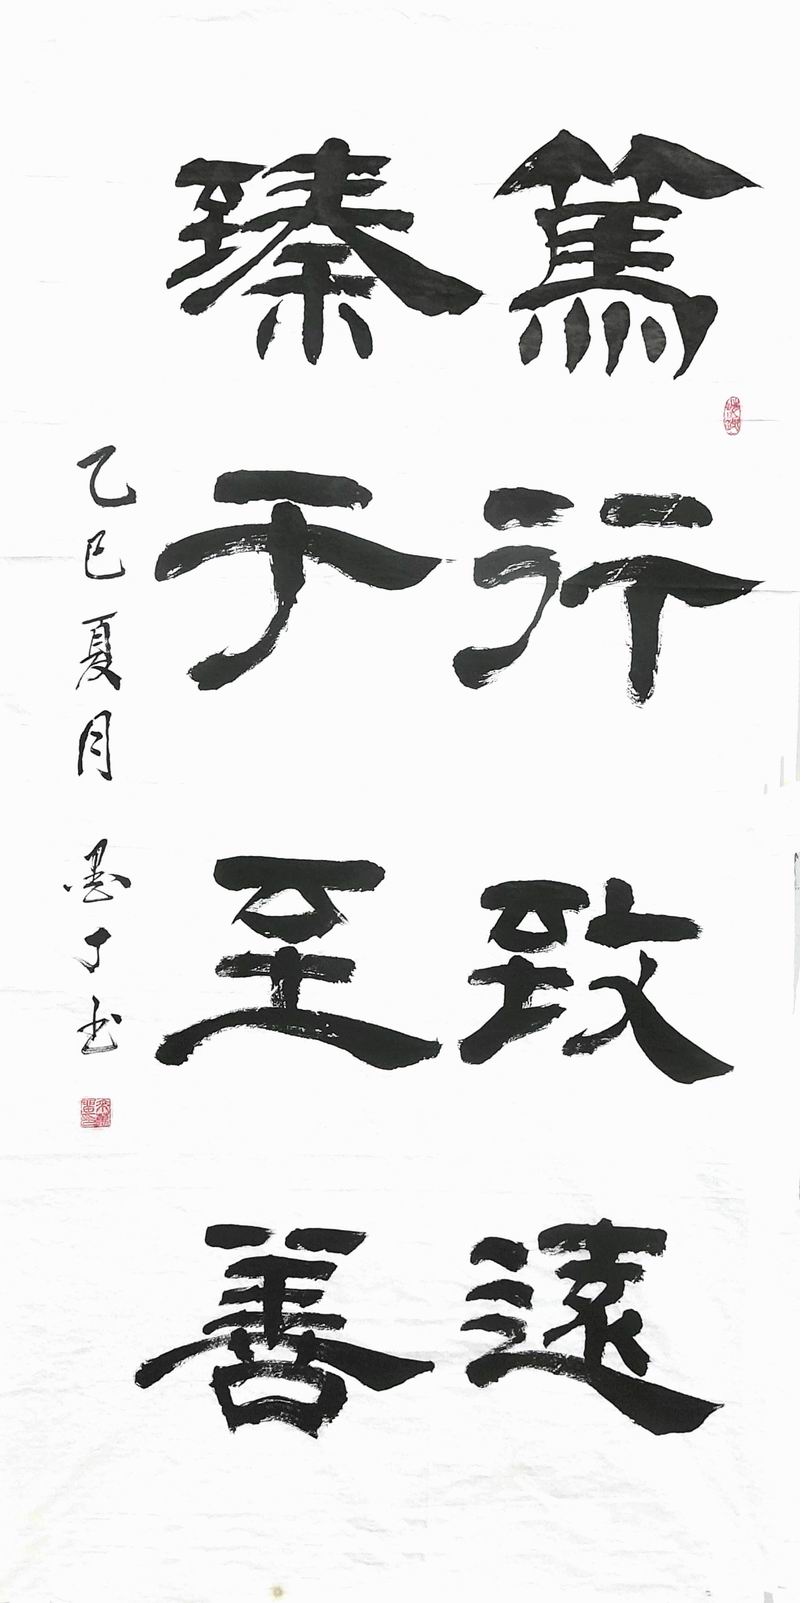 篤行致遠
臻于至善
乙巳夏月 墨丁书